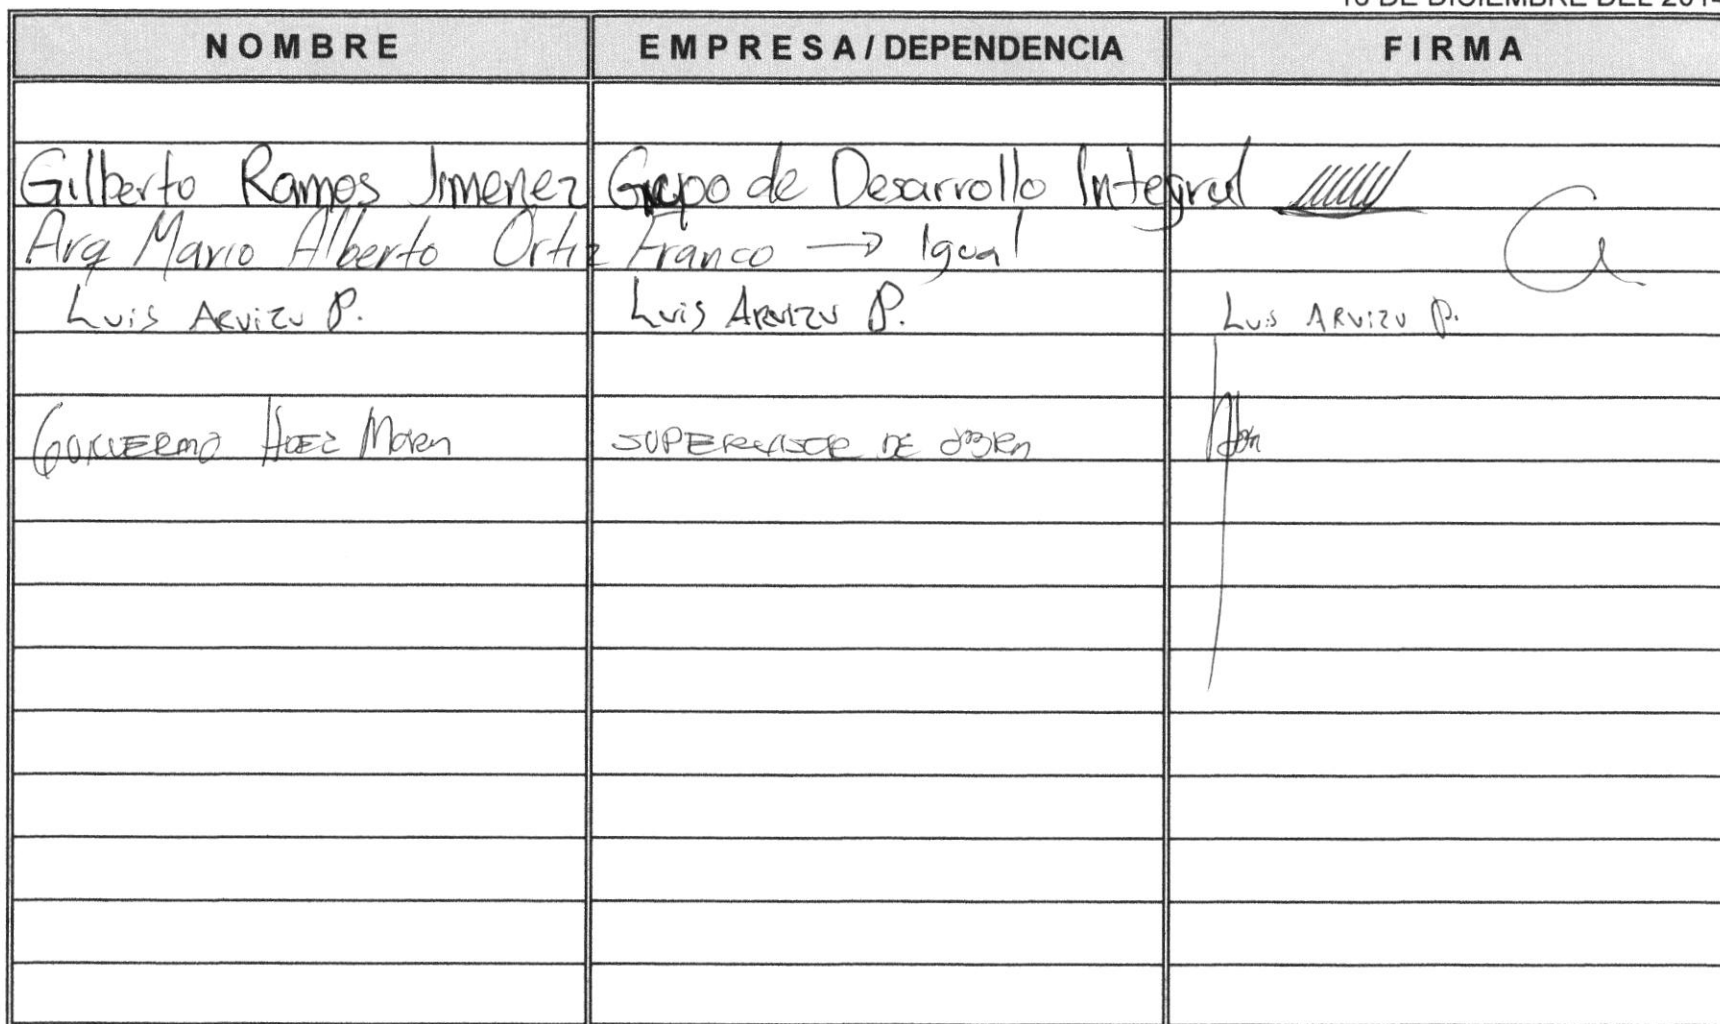 DE DICIEMBRE DEL 2014
NOMBRE EMPRESA/DEPENDENCIA FIRMA
Gilberto Ramos Jimenez Grupo de Desarrollo Integral
Arq Mario Alberto Ortiz Franco → Igual
Luis Arvizu P. Luis Arvizu P. Luis ARvizu P.
GUILLERMO HDEZ MORA SUPERVISOR DE OBRA